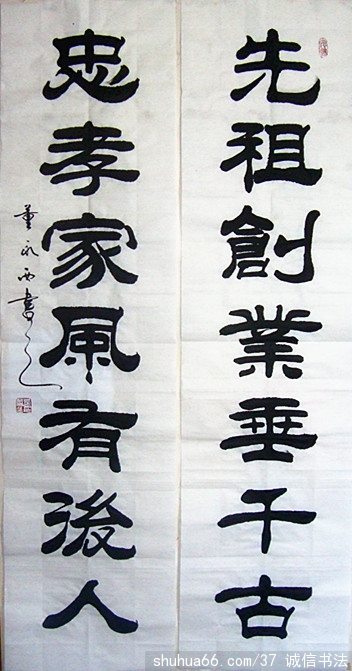 先祖創業垂千古
忠孝家風有後人
董永西書之
shuhua66.com/37 诚信书法